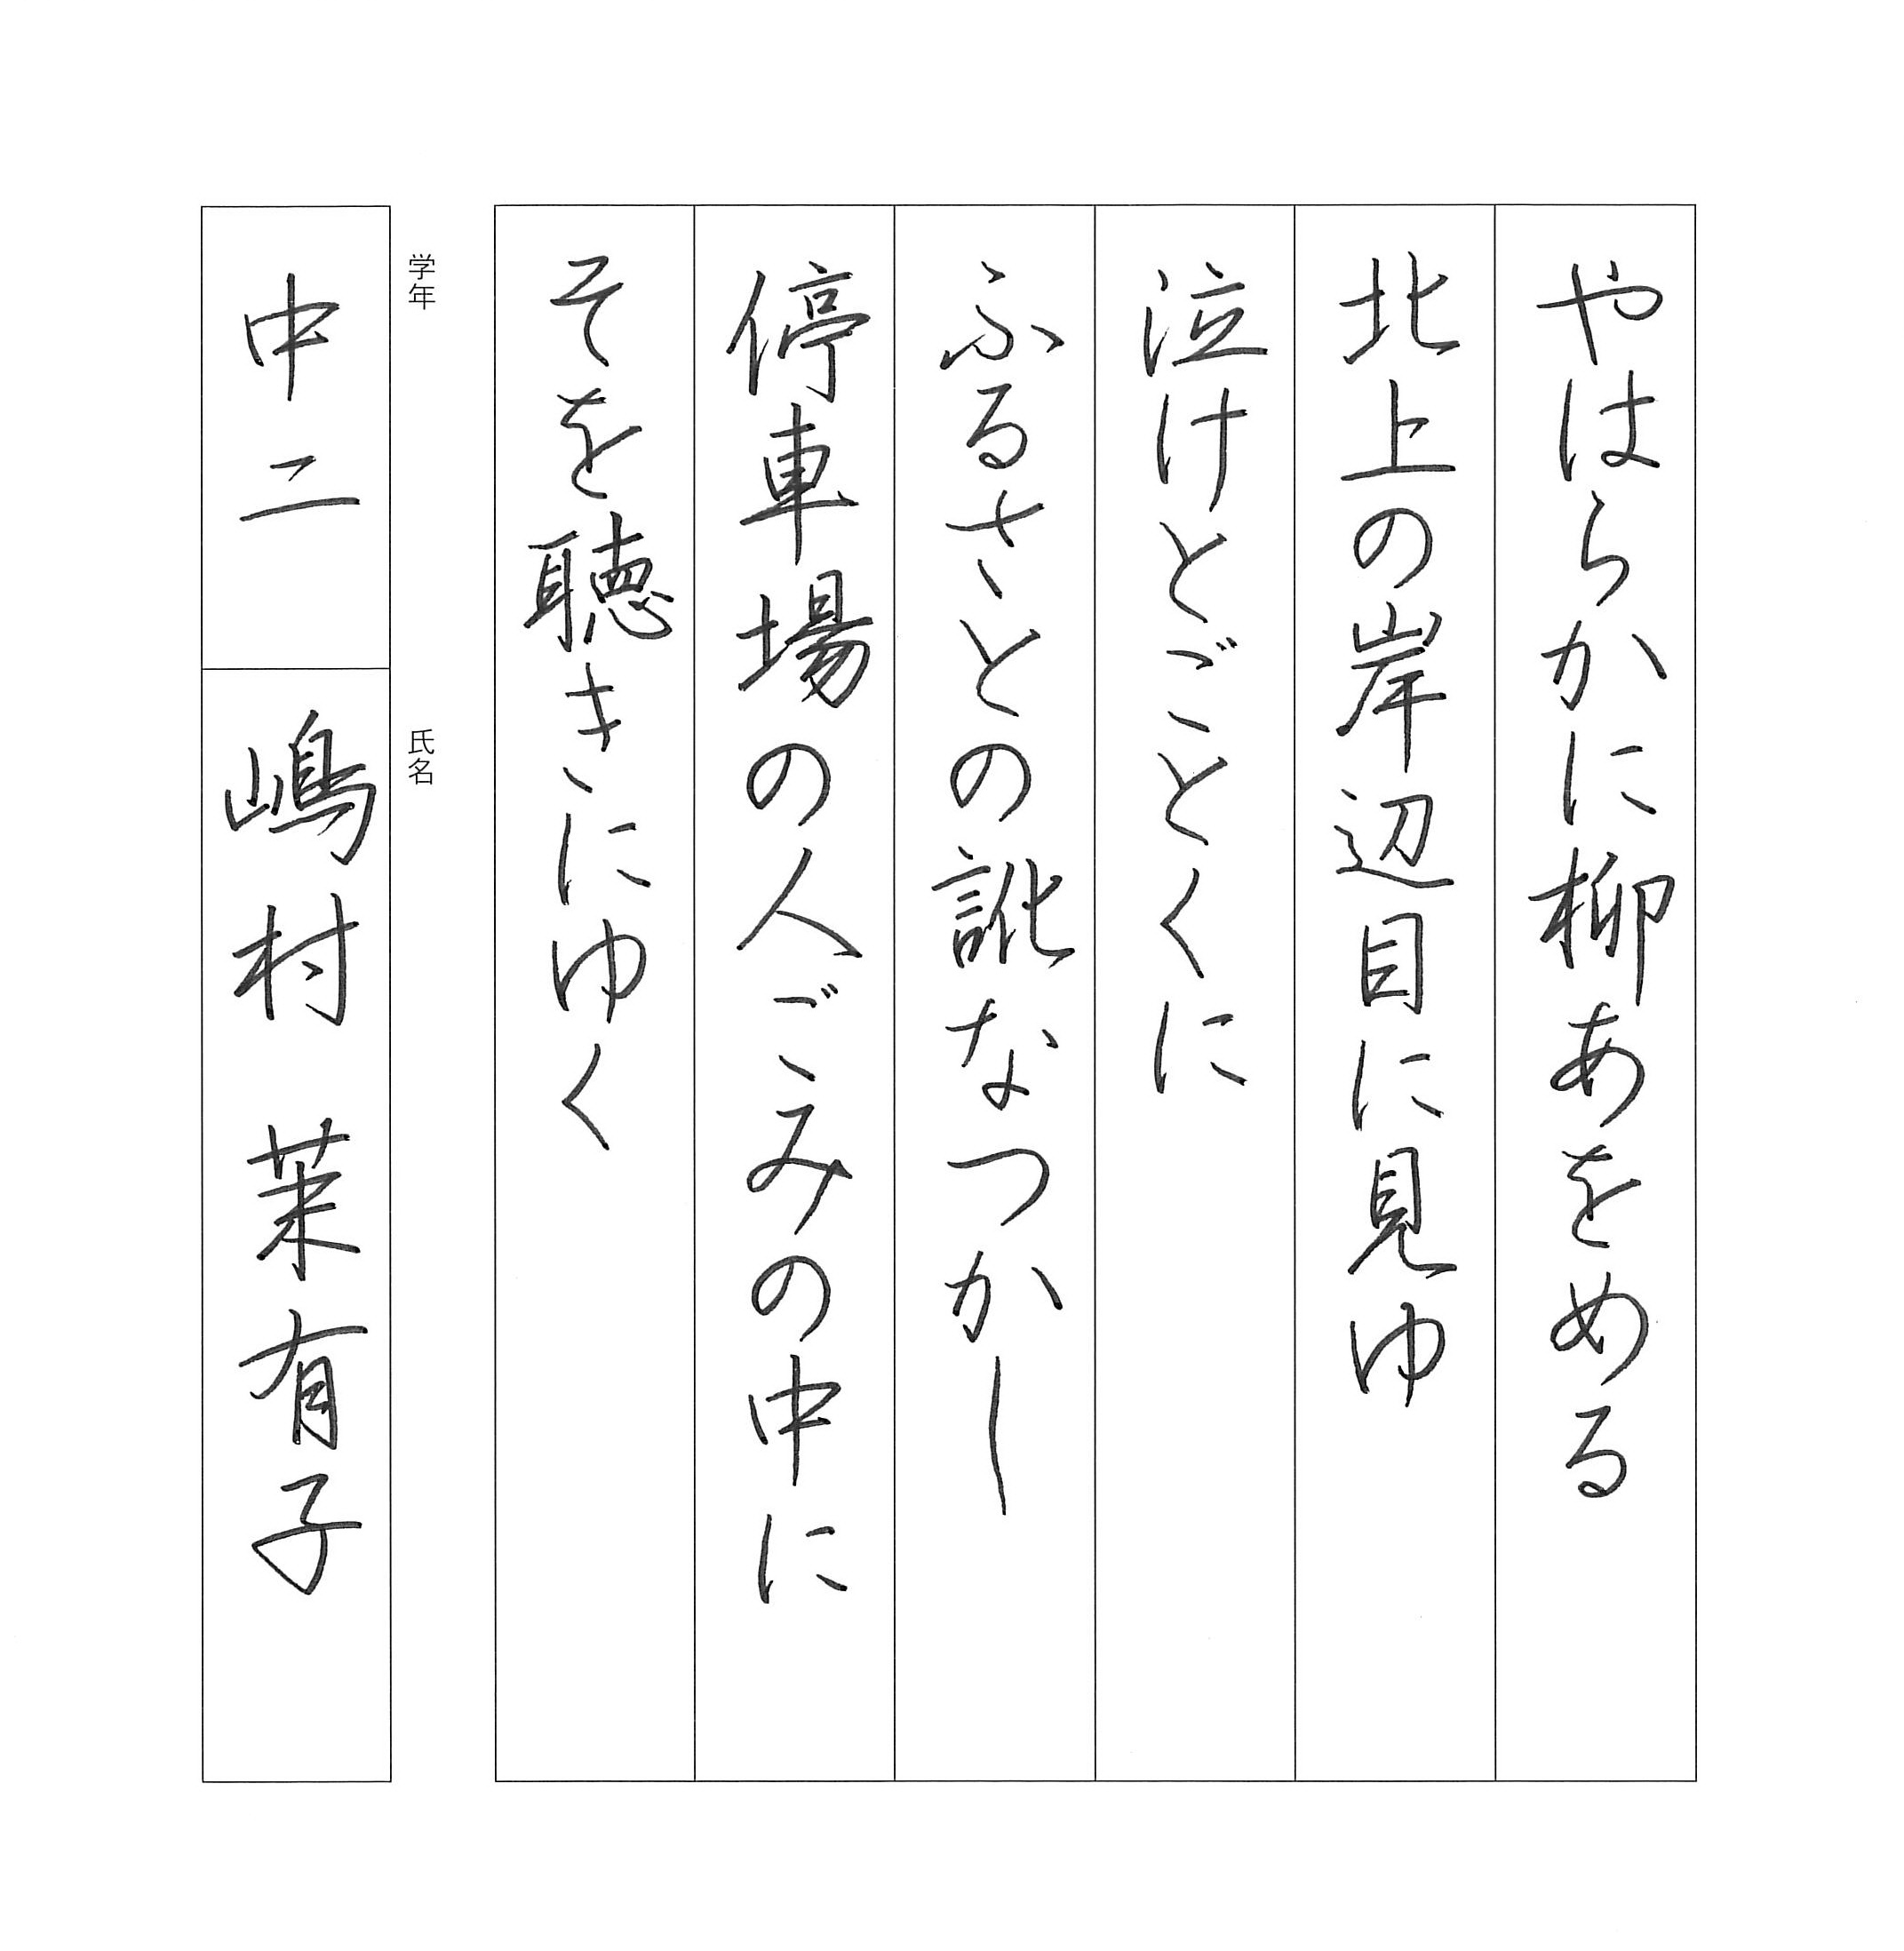 やはらかに柳あをめる
北上の岸辺目に見ゆ
泣けとごとくに
ふるさとの訛なつかし
停車場の人ごみの中に
そを聴きにゆく
学年
中二
氏名
嶋村 茉有子